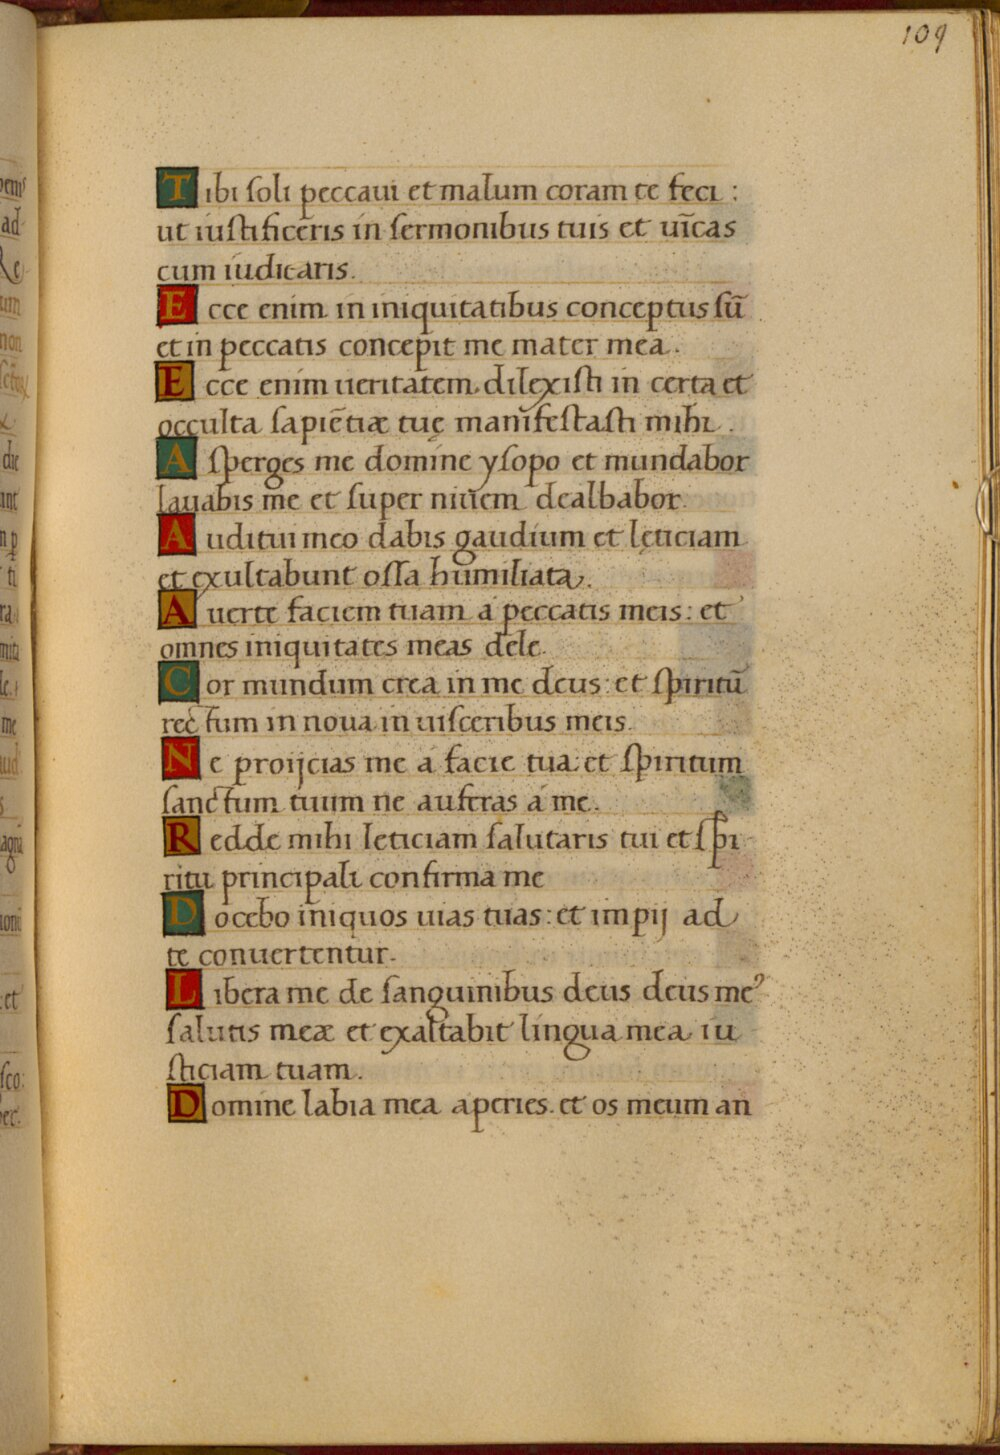 109
Tibi soli peccaui et malum coram te feci :
ut iustificeris in sermonibus tuis et uīcas
cum iudicaris.
Ecce enim in iniquitatibus conceptus sū
et in peccatis concepit me mater mea.
Ecce enim ueritatem dilexisti in certa et
occulta sapiētiæ tuę manifestasti mihi.
Asperges me domine ysopo et mundabor
lauabis me et super niuem dealbabor.
Auditui meo dabis gaudium et lęticiam
et exultabunt ossa humiliata.
Auerte faciem tuam a peccatis meis: et
omnes iniquitates meas dele.
Cor mundum crea in me deus: et spiritū
rectum in noua in uisceribus meis.
Ne proijcias me a facie tua: et spiritum
sanctum tuum ne auferas a me.
Redde mihi leticiam salutaris tui et spi
ritu principali confirma me
Docebo iniquos uias tuas: et impij ad
te conuertentur.
Libera me de sanguinibus deus deus meꝰ
salutis meæ et exaltabit lingua mea iu
sticiam tuam.
Domine labia mea aperies. et os meum an